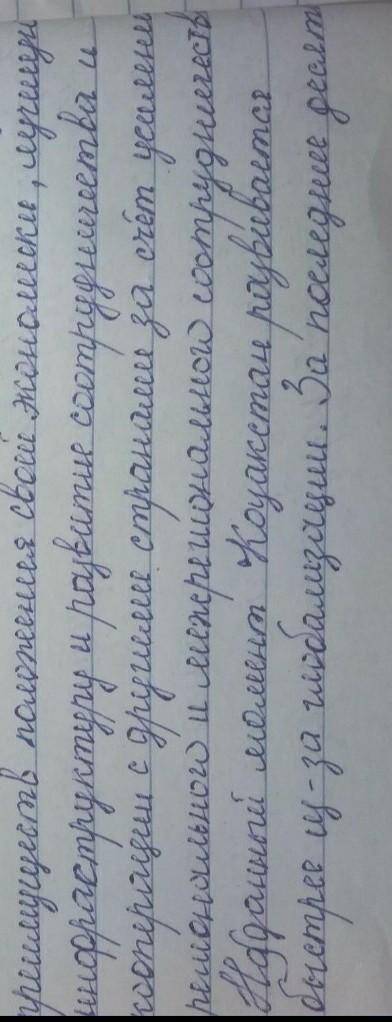 преимуществ положения свой экономики, лучшую
инфраструктуру и развитие соотрудничества и
кооперации с другими странами за счёт усилени
регионального и межрегиональной сотрудничеств
На данный момент Козакстан развивается
быстрее из-за глобализации. За последние десят